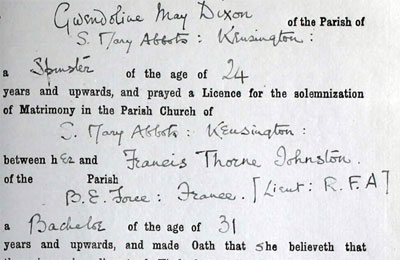 Gwendoline May Dixon of the Parish of
S. Mary Abbots : Kensington :
a Spinster of the age of 24
years and upwards, and prayed a Licence for the solemnization
of Matrimony in the Parish Church of
S. Mary Abbots : Kensington :
between her and Francis Thorne Johnston.
of the Parish
B. E. Force : France. [Lieut : R. F. A]
a Bachelor of the age of 31
years and upwards, and made Oath that she believeth that